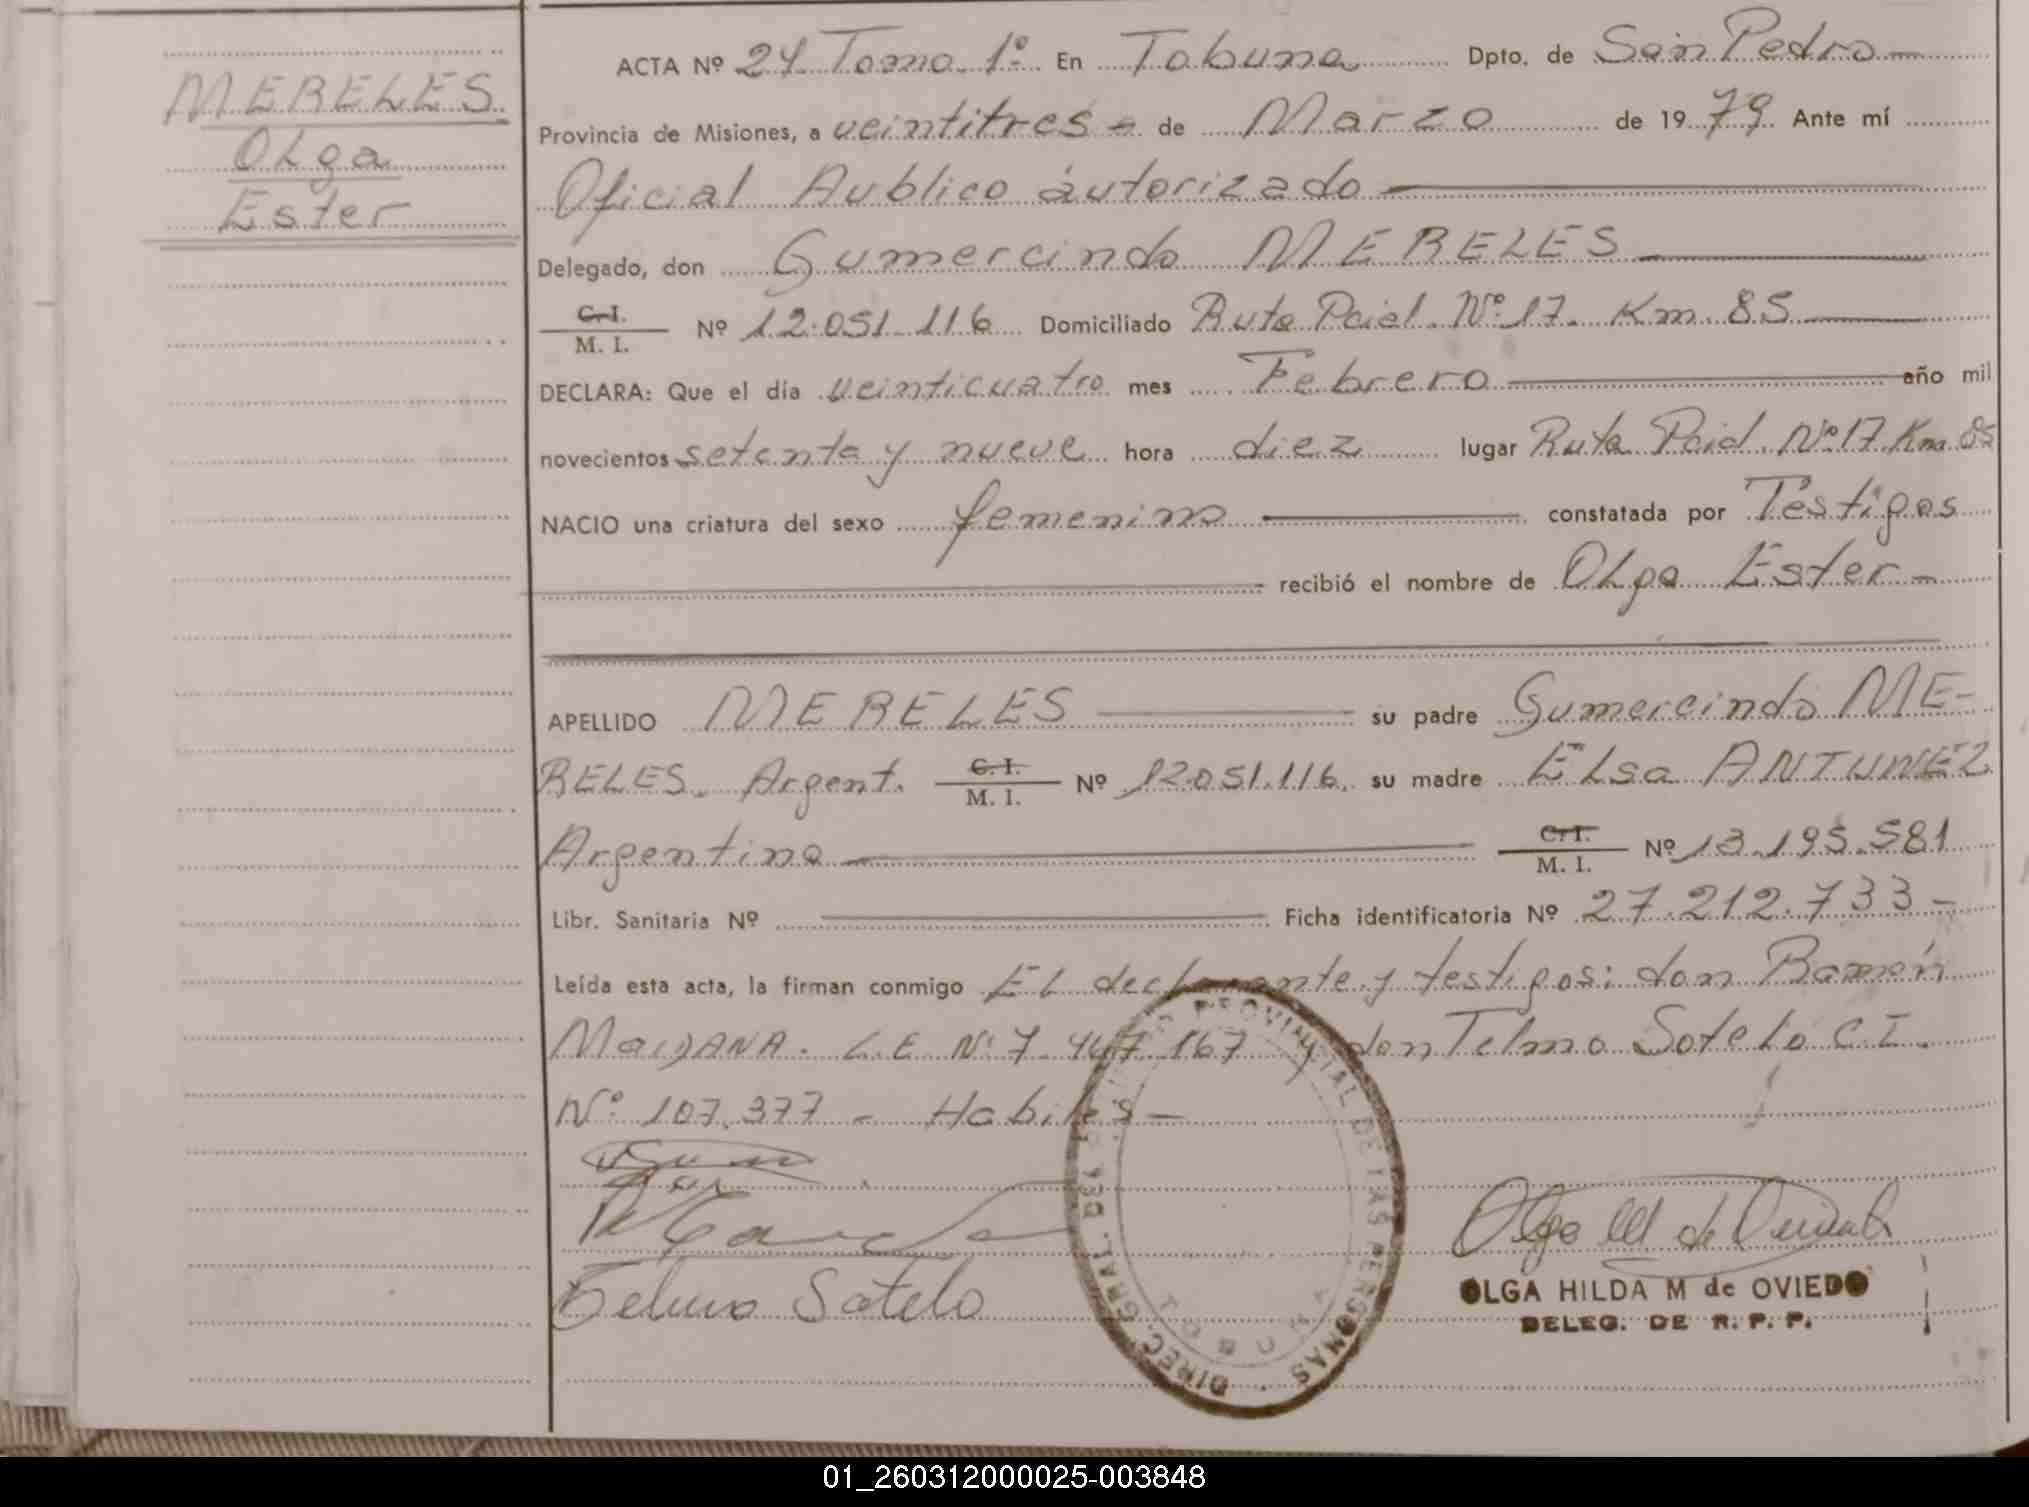 MERELES
Olga
Ester
ACTA Nº 24 Tomo 1º En Tobuna Dpto. de San Pedro
Provincia de Misiones, a veintitres de Marzo de 1979 Ante mí
Oficial Publico autorizado
Delegado, don Gumercindo MERELES
C. I.
M. I. Nº 12.051.116 Domiciliado Ruta Pcial. Nº 17 Km. 85
DECLARA: Que el día veinticuatro mes Febrero año mil
novecientos setenta y nueve hora diez lugar Ruta Pcial. Nº 17 Km. 85
NACIO una criatura del sexo femenino constatada por Testigos
recibió el nombre de Olga Ester
APELLIDO MERELES su padre Gumercindo ME-
RELES. Argent. C. I. M. I. Nº 12051.116. su madre Elsa ANTUNEZ
Argentina C. I. M. I. Nº 13.195.581
Libr. Sanitaria Nº Ficha identificatoria Nº 27.212.733
Leída esta acta, la firman conmigo El declarante y testigos: don Ramón
MaiDANA. L.E. Nº 7.447.167 y don Telmo Sotelo C I.
Nº 107.377 - Habiles -
Telmo Sotelo
PROVINCIAL DE LAS PERSONAS · DIREC. GRAL. DEL
TOBUNA
OLGA HILDA M de OVIEDO
DELEG. DE R. P. P.
01_260312000025-003848